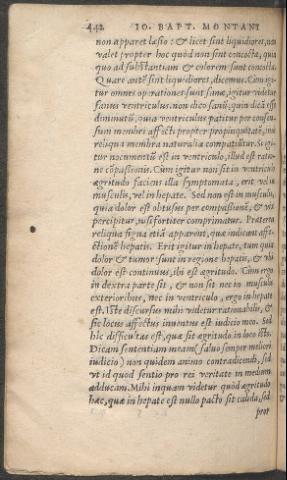 442 IO. BAPT. MONTANI
non apparet læsio: & licet sint liquidiores, non
valet propter hoc quòd non sint concocta, quia
quo ad substantiam & colorem sunt concocta.
Quare autē sint liquidiores, dicemus. Cum igi
tur omnes operationes sunt sanæ, igitur videtur
sanus ventriculus. non dico sanū, quin dicā esse
diminutū, quia ventriculus patitur per consen-
sum membri affecti propter propinquitatē, imò
reliqua membra naturalia compatiūtur. Si igi
tur nocumentū est in ventriculo, illud est ratio-
ne cōpassionis. Cùm igitur non sit in ventriculo
ægritudo faciens illa symptomata, erit vel in
musculis, vel in hepate. Sed non est in musculis,
quia dolor est obtusus per compassionē, & vix
percipitur, nisi fortiter comprimatur. Præterea
reliqua signa etiā apparent, quæ indicant affe-
ctionē hepatis. Erit igitur in hepate, tum quia
dolor & tumor sunt in regione hepatis, & vbi
dolor est continuus, ibi est ægritudo. Cùm ergo
in dextra parte sit, & non sit nec in musculis
exterioribus, nec in ventriculo, ergo in hepate
est. Iste discursus mihi videtur rationabilis, &
sic locus affectus inuentus est iudicio meo. Sed
hîc difficultas est, quæ sit ægritudo in loco isto.
Dicam sententiam meam (saluo semper meliori
iudicio) non quidem animo contradicendi, sed
vt id quod sentio pro rei veritate in medium
adducam. Mihi inquam videtur quòd ægritudo
hæc, quæ in hepate est nullo pacto sit calida, sed